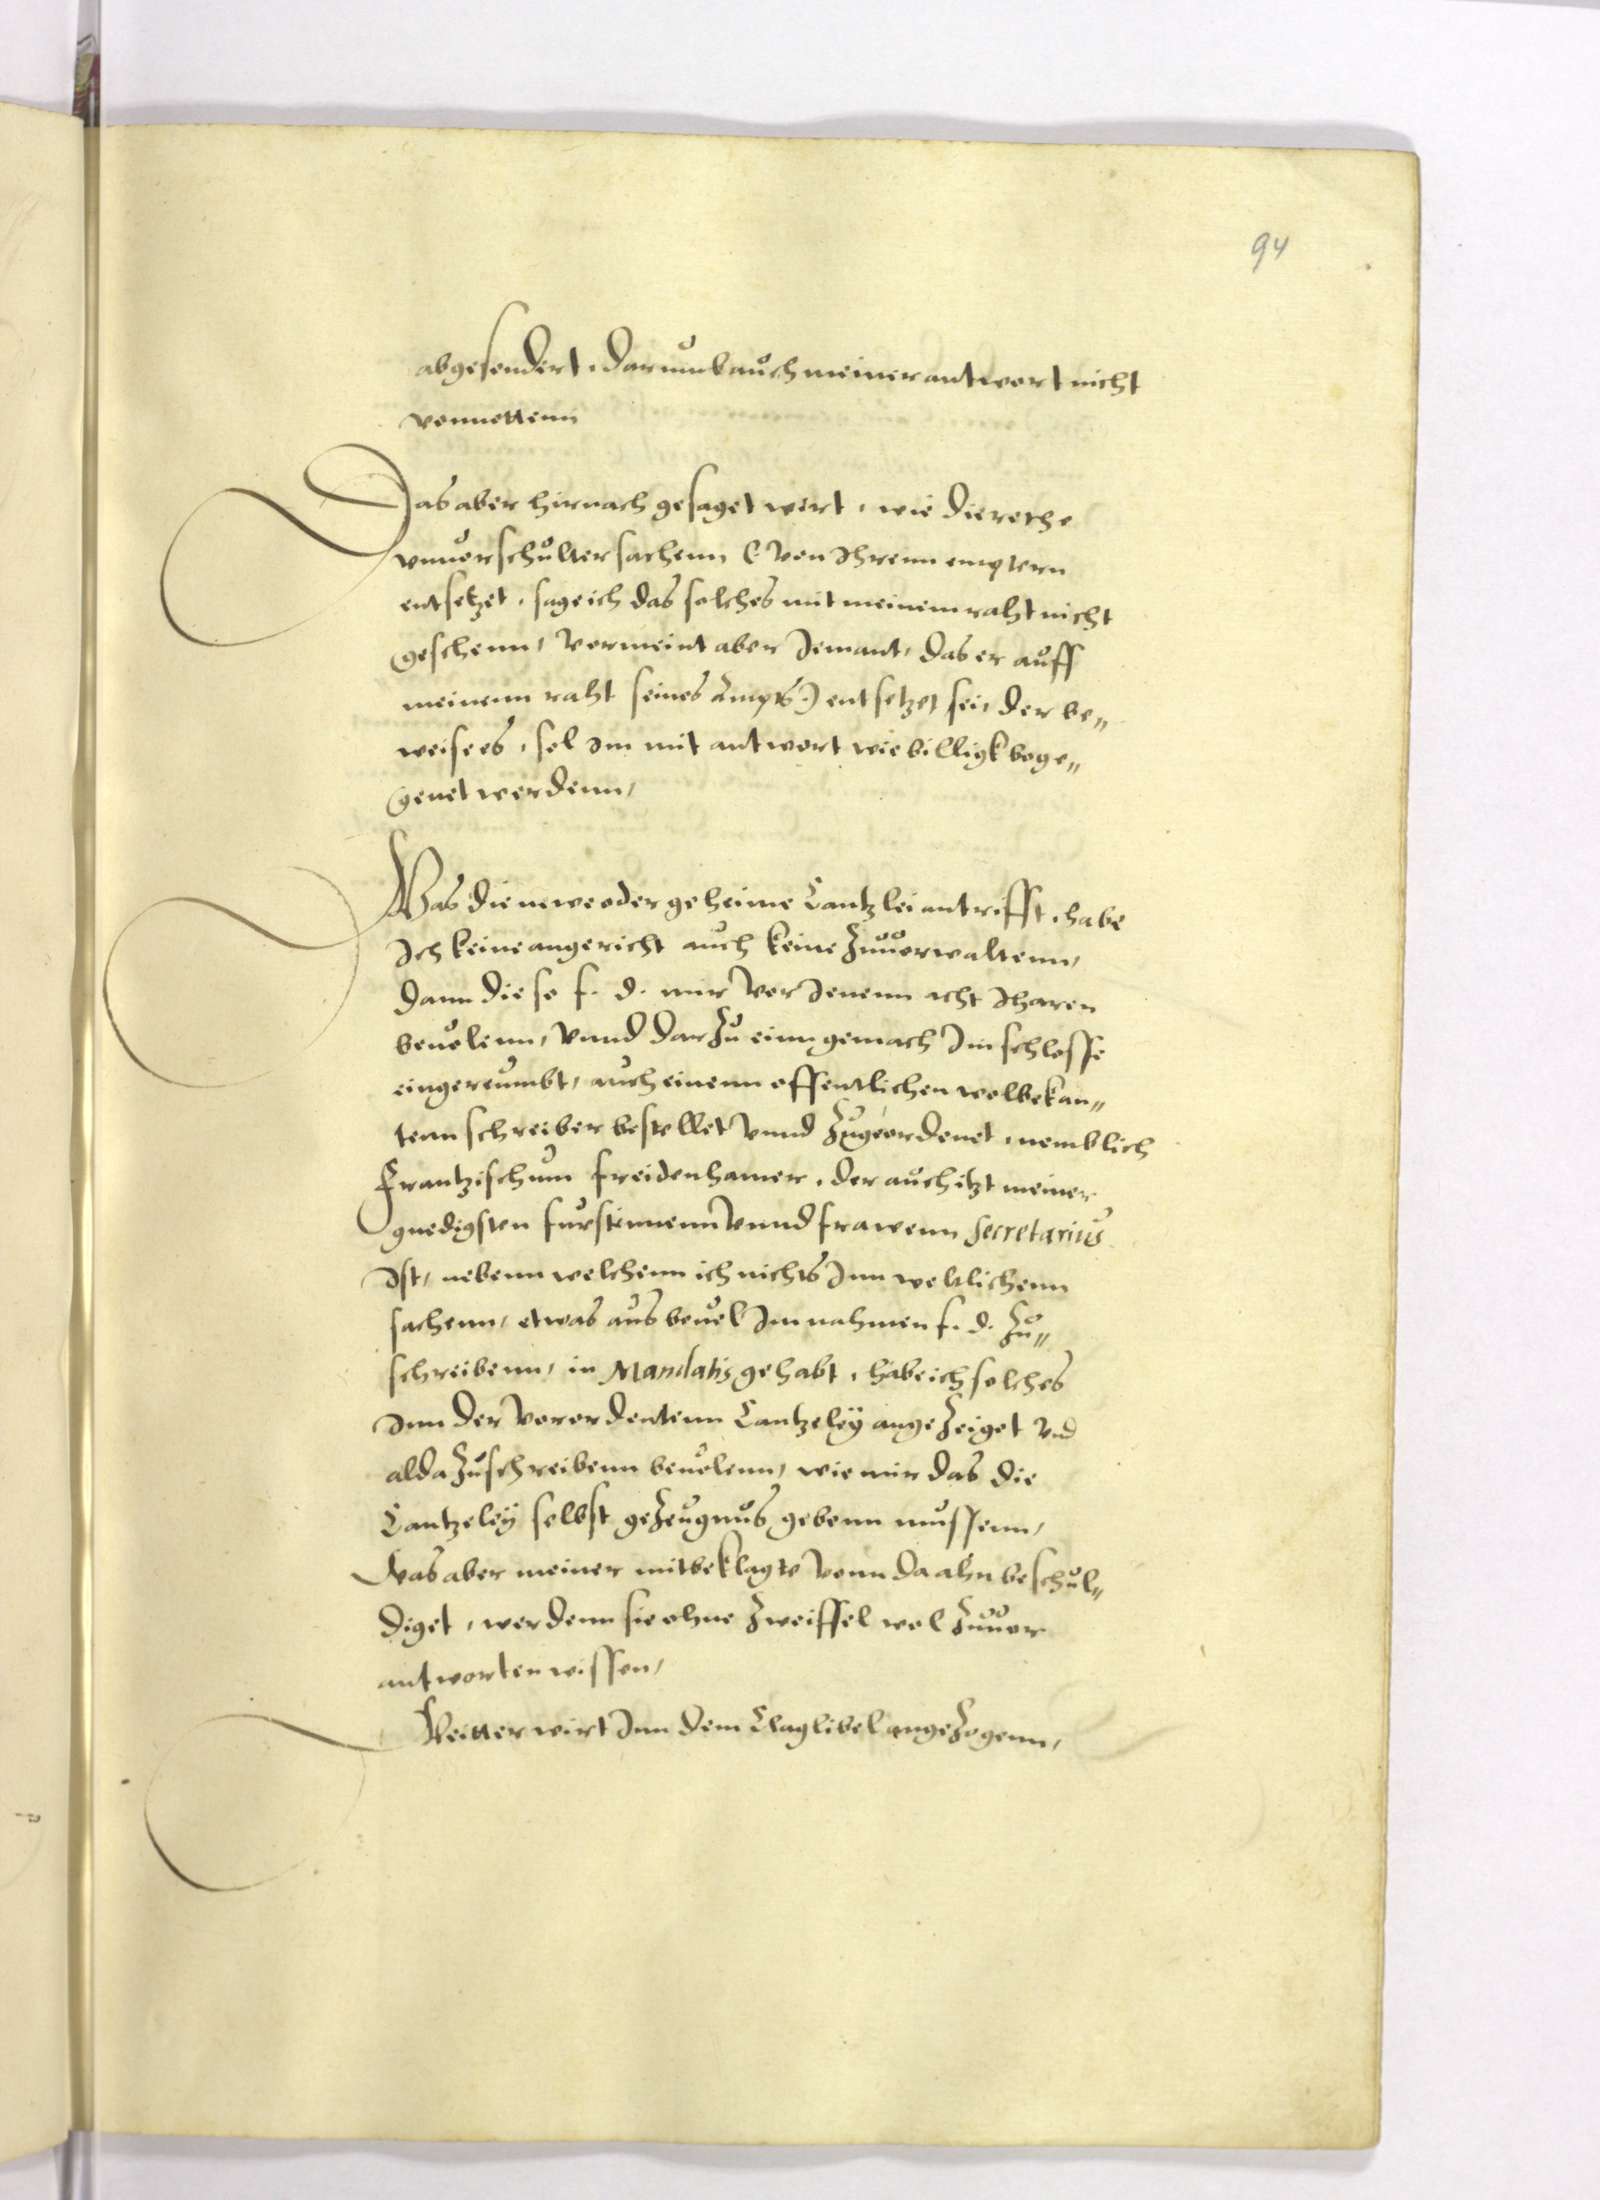 94
abgesondert, darumb auch meiner antwort nicht
vonnottenn
Das aber hirnach gesaget wert, wie die rethe
unuorschulter sachenn (vonn Ihrenn emptern
entsetzet, sage ich das solches mit meinem raht nicht
geschenn, vormeint aber Jemant, das er auff
meinenn raht seines Ampts) entsetzet sei, der be„
weise es, sol Im mit antwort wie billigk bege„
genet werdenn,
Was die newe oder geheime Cantzlei antrifft, habe
Ich keine angericht auch keine zuuorwaltenn,
dann diese f. d. mir vor Jenenn acht Jharen
beuolenn, vnnd darzu einn gemach Im schlosse
eingereumbt, auch einenn offentlichen wolbekan„
tenn schreiber bestellet vnnd zugeordenet, nemblich
Frantzischum freidenhamer, der auch itzt meiner
gnedigsten furstinnenn vnnd frawenn Secretarius
Ist, nebenn welchenn ich nichts Inn weltlichenn
sachenn, etwas aus beuel Im nahmen f. d. zu„
schreibenn, in Mandatis gehabt, habe ich solches
Inn der vorordentenn Cantzeleÿ angezeiget vnd
alda zuschreibenn beuolenn, wie mir das die
Cantzeleÿ selbst gezeugnus gebenn mussenn,
Was aber meiner mitbeklagte vonn da ahn beschul„
diget, werdenn sie ohne zweiffel wol zuuor
antworten wissen,
Weitter wirt Inn dem Claglibel angezogenn,